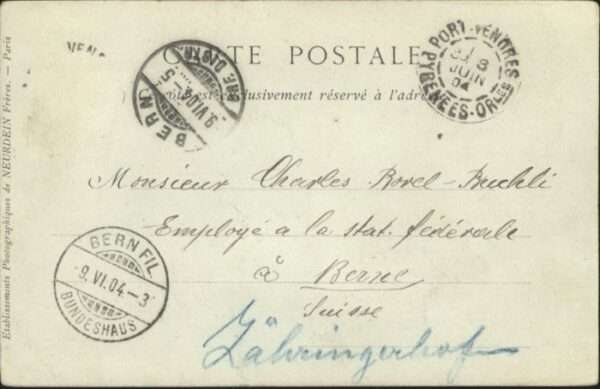 CARTE POSTALE
Ce côté est exclusivement réservé à l'adresse
PORT-VENDRES
8
JUIN
04
PYRÉNÉES-ORLES
BERN
9.VI.04
Monsieur Charles Borel-Buchli
Employé a la stat. fédérale
à Berne
Suisse
Zähringerhof
BERN FIL.
-9.VI.04-3
BUNDESHAUS
Etablissements Photographiques de NEURDEIN Frères. — Paris